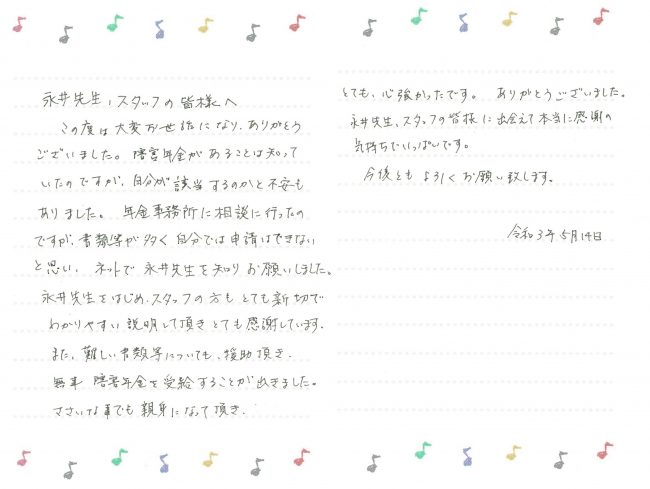 永井先生、スタッフの皆様へ
この度は大変お世話になり、ありがとう
ございました。障害年金があることは知って
いたのですが、自分が該当するのかと不安も
ありました。年金事務所に相談に行ったの
ですが、書類等が多く自分では申請はできない
と思い、ネットで永井先生を知りお願いしました。
永井先生をはじめ、スタッフの方もとても新切で
わかりやすい説明して頂きとても感謝しています。
また、難しい書類等についても、援助頂き、
無事障害年金を受給することが出きました。
ささいな事でも親身になって頂き、
とても、心強かったです。ありがとうございました。
永井先生、スタッフの皆様に出会えて本当に感謝の
気持ちでいっぱいです。
今後ともよろしくお願い致します。
令和3年5月14日